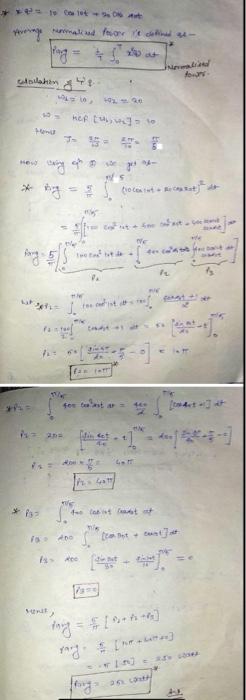 * x(t) = 10 cos 10t + 20 cos 20t
Average normalised power is defined as -
Pavg = 1/T ∫₀ᵀ x²(t) dt
Normalised power.
Calculation of
ω₁ = 10, ω₂ = 20
ω = HCF [ω₁, ω₂] = 10
Hence T = 2π/ω = 2π/10 = π/5
Now using eqⁿ ① we get as -
* Pavg = 5/π ∫₀^π/5 (10 cos 10t + 20 cos 20t)² dt
= 5/π ∫₀^π/5 [100 cos² 10t + 400 cos² 20t + 400 cos 10t cos 20t] dt
Pavg = 5/π [∫₀^π/5 100 cos² 10t dt + ∫₀^π/5 400 cos² 20t dt + ∫₀^π/5 400 cos 10t cos 20t dt]
P₁ P₂ P₃
Let P₁ = ∫₀^π/5 100 cos² 10t dt = 100 ∫₀^π/5 [cos 20t + 1]/2 dt
P₁ = 100/2 ∫₀^π/5 [cos 20t + 1] dt = 50 [sin 20t/20 + t]₀^π/5
P₁ = 50 = 10π
P₁ = 10π
* P₂ = ∫₀^π/5 400 cos² 20t dt = 400/2 ∫₀^π/5 [cos 40t + 1] dt
P₂ = 200 [sin 40t/40 + t]₀^π/5 = 200
P₂ = 200 × π/5 = 40π
P₂ = 40π
* P₃ = ∫₀^π/5 400 cos 10t cos 20t dt
P₃ = 200 ∫₀^π/5 [cos 30t + cos 10t] dt
P₃ = 200 [sin 30t/30 + sin 10t/10]₀^π/5 = 0
P₃ = 0
Hence,
Pavg = 5/π [P₁ + P₂ + P₃]
Pavg = 5/π [10π + 40π + 0]
= 5 [50] = 250 watt
Pavg = 250 watt